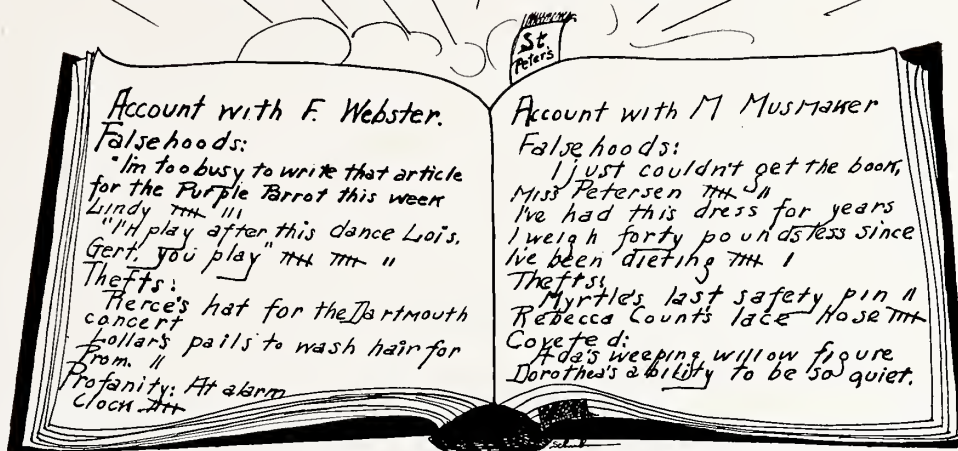 St.
Peter's
Account with F. Webster.
Falsehoods:
"Im too busy to write that article
for the Purple Parrot this week
Lindy 𝍸 III
"I'll play after this dance Lois.
Gert, you play" 𝍸 𝍸 II
Thefts:
Pierce's hat for the Dartmouth
concert
Lollar's pails to wash hair for
Prom. II
Profanity: At alarm
Clock 𝍸
Account with M Musmaker
Falsehoods:
I just couldn't get the book,
Miss Petersen 𝍸 II
I've had this dress for years
I weigh forty pounds less since
I've been dieting 𝍸 I
Thefts:
Myrtle's last safety pin II
Rebecca Count's lace hose 𝍸
Coveted:
Ada's weeping willow figure
Dorothea's ability to be so quiet.